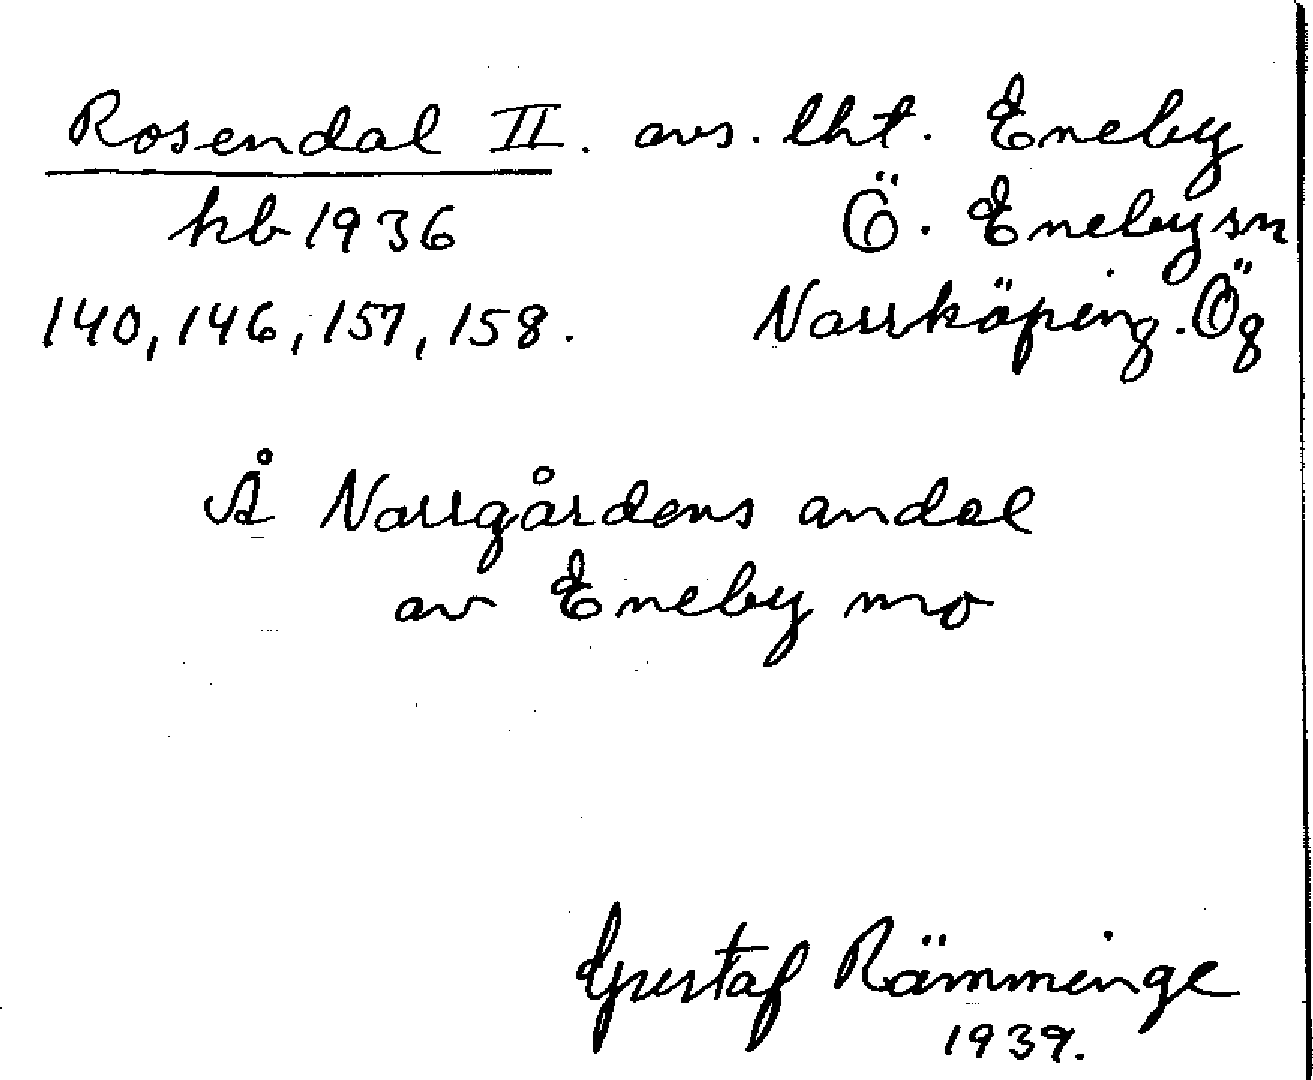 Rosendal II. avs. lht. Eneby
hb 1936 Ö. Eneby sn
140, 146, 157, 158. Norrköping. Ög
Å Norrgårdens andel
av Eneby mo
Gustaf Rämminge
1939.